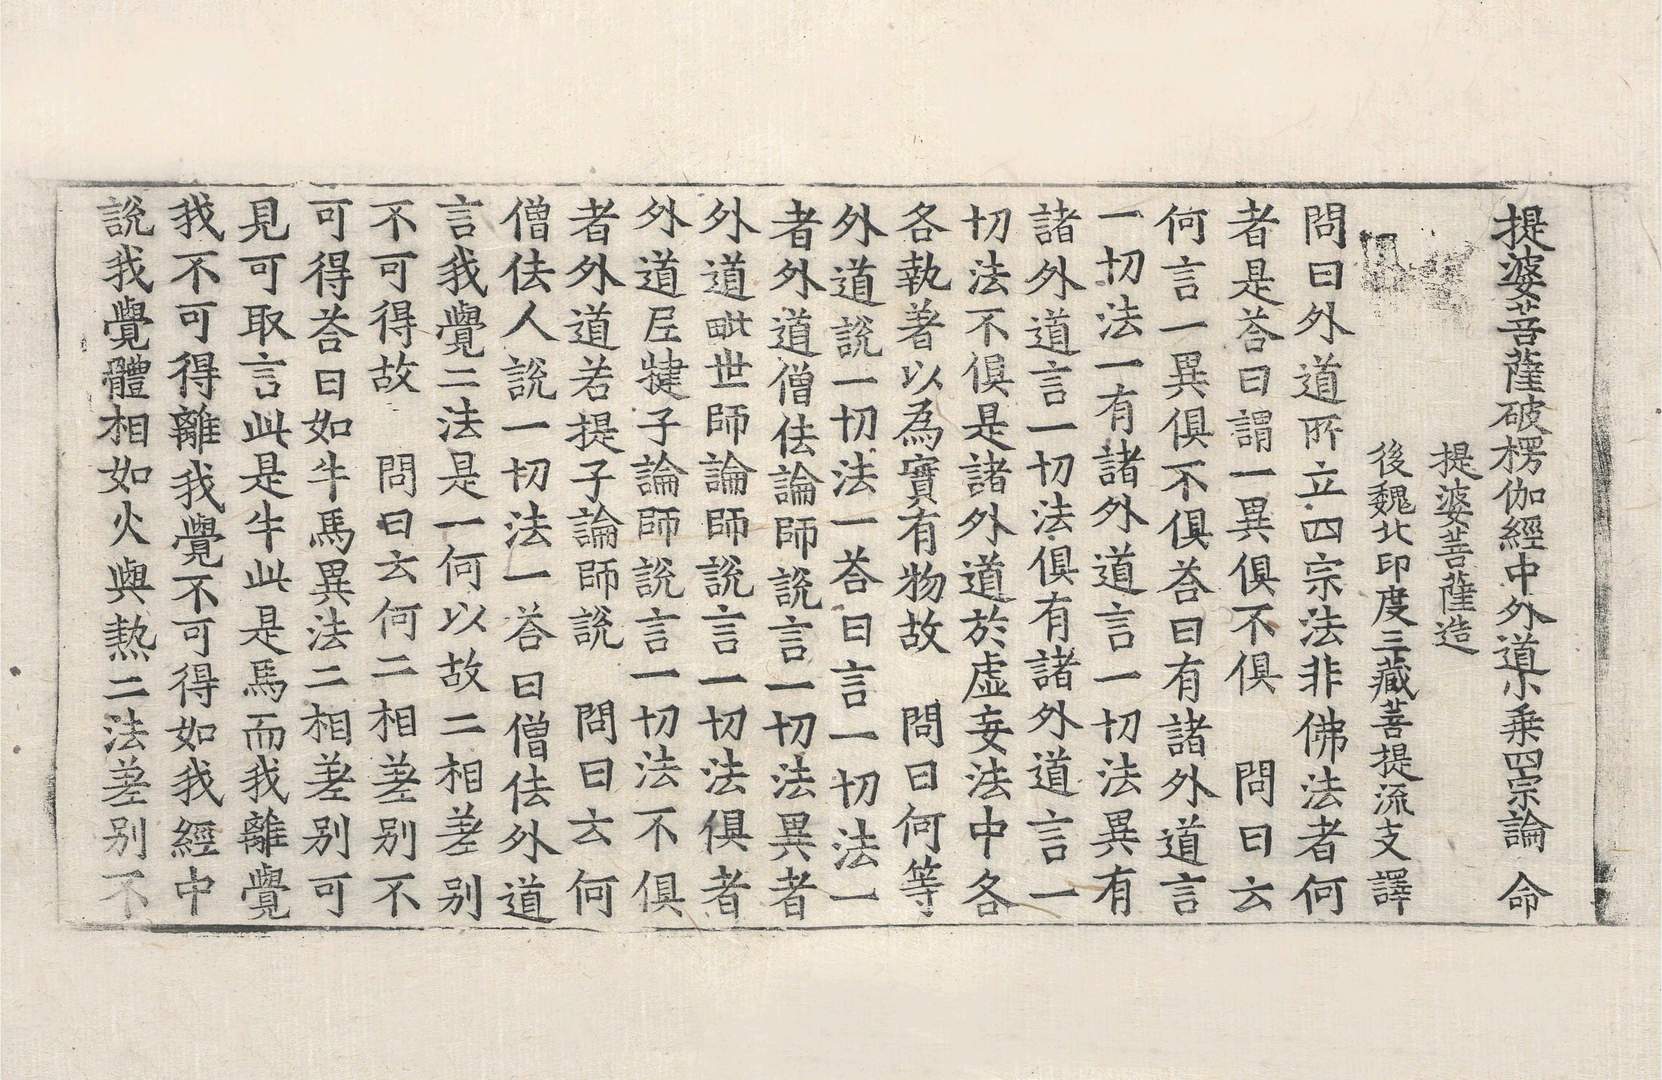 提婆菩薩破楞伽經中外道小乘四宗論 命
提婆菩薩造
後魏北印度三藏菩提流支譯
問曰外道所立四宗法非佛法者何
者是荅曰謂一異俱不俱 問曰云
何言一異俱不俱荅曰有諸外道言
一切法一有諸外道言一切法異有
諸外道言一切法俱有諸外道言一
切法不俱是諸外道於虛妄法中各
各執著以為實有物故 問曰何等
外道說一切法一荅曰言一切法一
者外道僧佉論師說言一切法異者
外道毗世師論師說言一切法俱者
外道尼犍子論師說言一切法不俱
者外道若提子論師說 問曰云何
僧佉人說一切法一荅曰僧佉外道
言我覺二法是一何以故二相差別
不可得故 問曰云何二相差別不
可得荅曰如牛馬異法二相差別可
見可取言此是牛此是馬而我離覺
我不可得離我覺不可得如我經中
說我覺體相如火與熱二法差別不